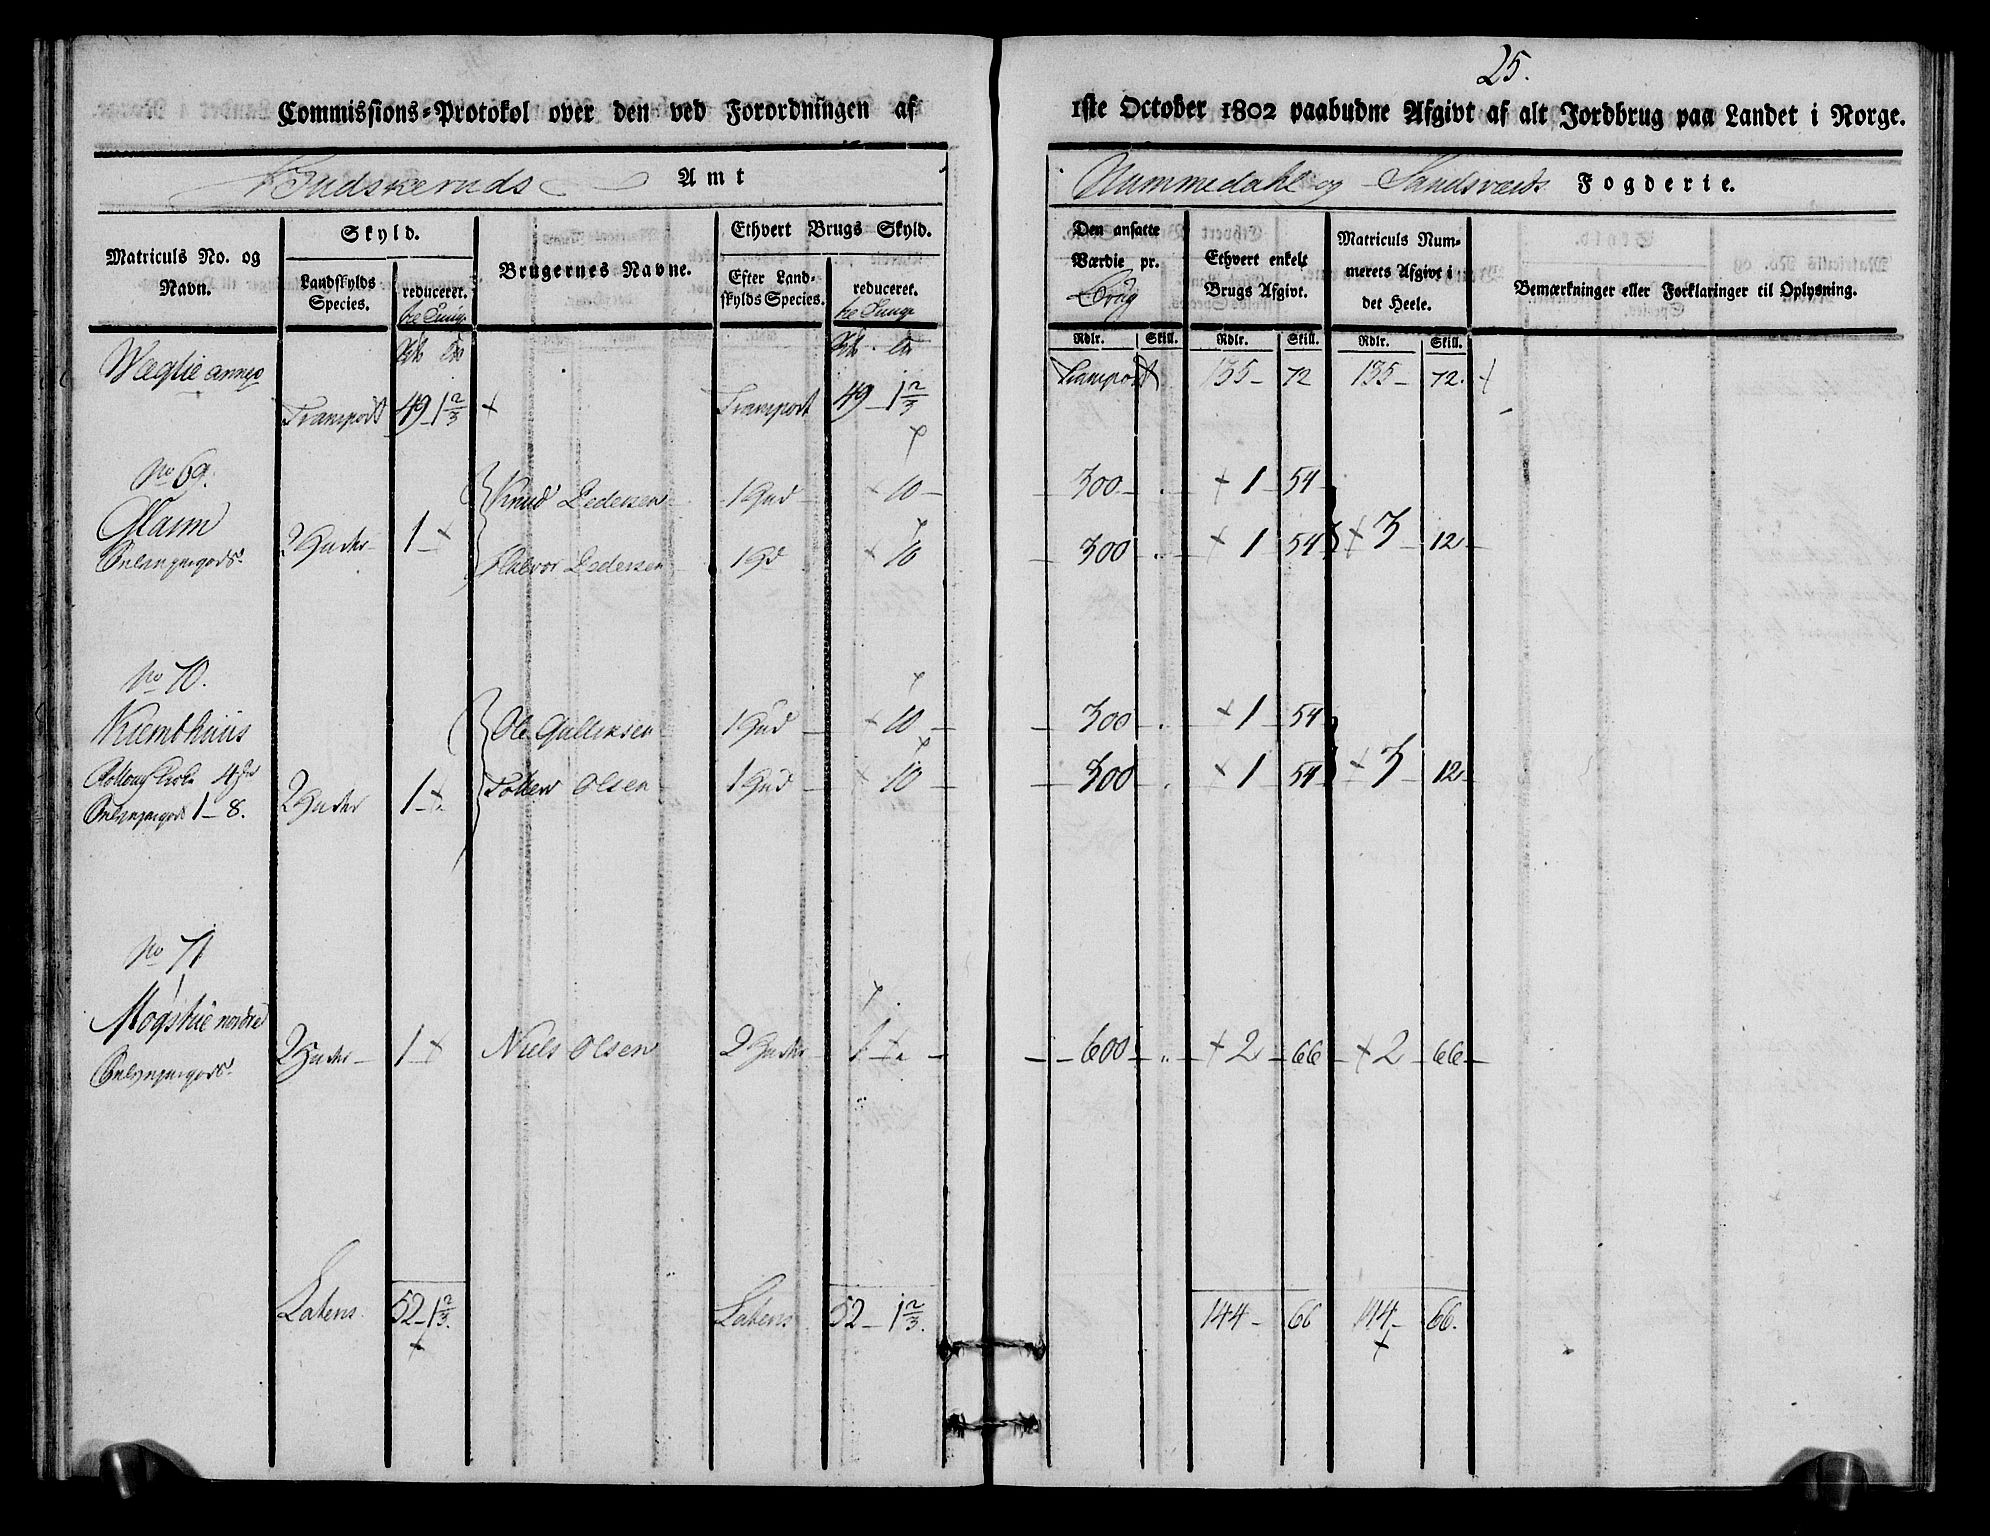 25.
Commissions=Protokol over den ved Forordningen af
1ste October 1802 paabudne Afgivt af alt Jordbrug paa Landet i Norge.
Budskeruds Amt
Nummedahl og Sandsværds Fogderie.
Matriculs No. og Navn.
Skyld.
Landskylds Species.
reduceret.
Brugernes Navne.
Ethvert Brugs Skyld.
Efter Landskylds Species.
reduceret.
Den ansatte Værdie pr. Brug
Ethvert enkelt Brugs Afgivt.
Matriculs Nummerets Afgivt i det Heele.
Bemærkninger eller Forklaringer til Oplysning.
Rdlr. Skill. Rdlr. Skill. Rdlr. Skill.
Wæglie annex
Transport 135 - 72 135 - 72.
Transport 49 - 1 2/3 Transport 49 - 1 2/3
No 69.
Knud Pedersen 1 Hud 10 300 1 54
2 Huder 1 3 12
Halvor Pedersen 1 Hd 10 300 1 54
No 70.
Ole Gulliksen 1 Hud 10 300 1 54
2 Huder 1 Tollew Olsen 1 Hud 10 300 1 54 3 12
1 - 8.
No 71
Mogstue nordre
2 Huder 1 Niels Olsen 2 Huder 1 600 2 66 2 66
Latens 52 - 1 2/3. Latens 52 - 1 2/3. 144 - 66 144 - 66.